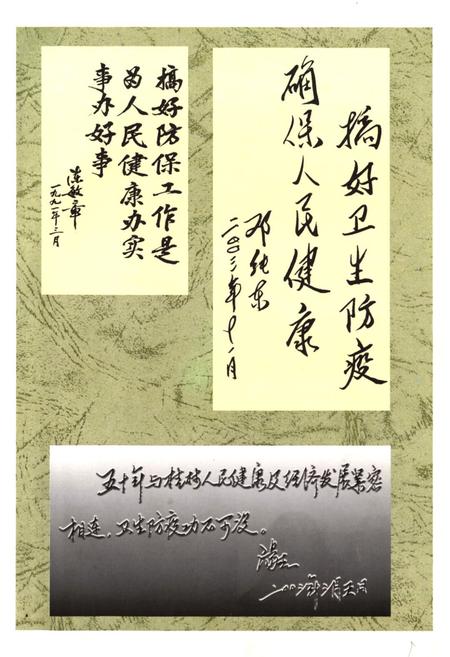 搞好卫生防疫
确保人民健康
邓纯东
二〇〇三年十一月
搞好防保工作是
为人民健康办实
事办好事
陈敏章
一九九一年三月
五十年与桂林人民健康及经济发展紧密
相连，卫生防疫功不可没。